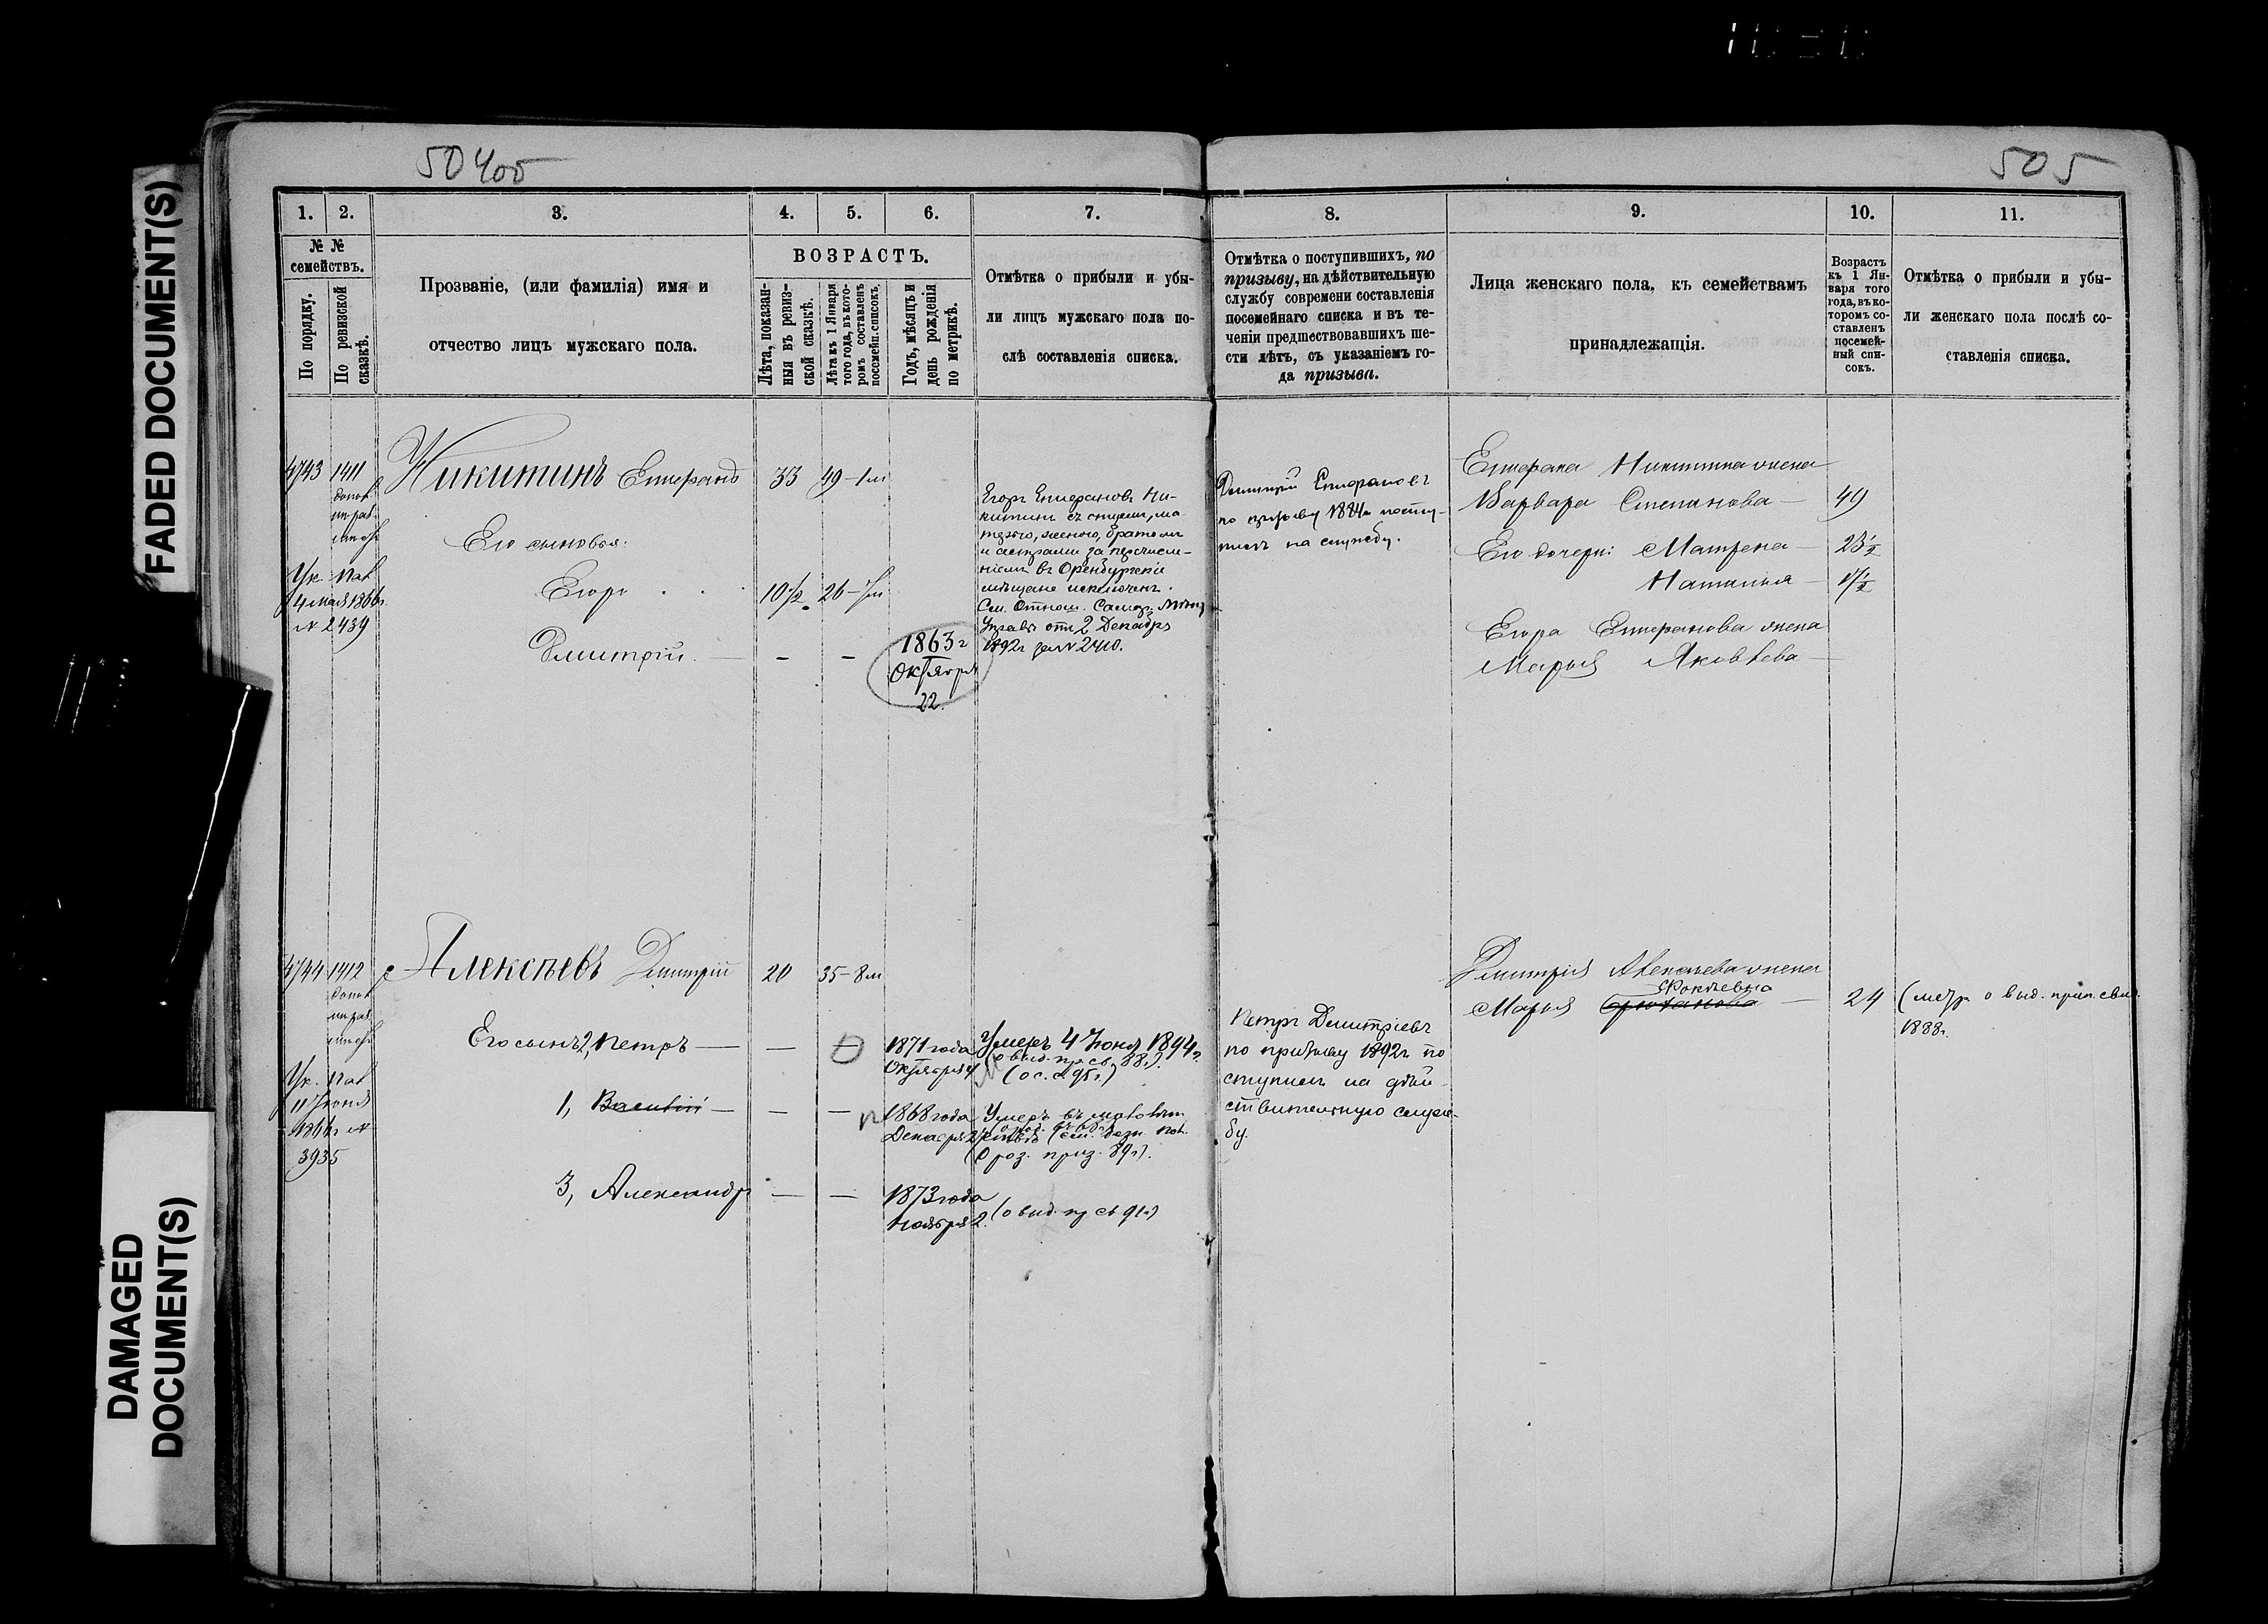 FADED DOCUMENT(S)
DAMAGED
DOCUMENT(S)
505
1.
2.
3.
4.
5.
6.
7.
8.
9.
10.
11.
№ №
семействъ.
По порядку.
По ревизской
сказкѣ.
Прозваніе, (или фамилія) имя и
отчество лицъ мужскаго пола.
ВОЗРАСТЪ.
Лѣта, показан-
ныя въ ревиз-
ской сказкѣ.
Лѣта къ 1 Января
того года, въ кото-
ромъ составленъ
посемейн. списокъ.
Годъ, мѣсяцъ и
день рожденія
по метрикѣ.
Отмѣтка о прибыли и убы-
ли лицъ мужскаго пола по-
слѣ составленія списка.
Отмѣтка о поступившихъ, по
призыву, на дѣйствительную
службу современи составленія
посемейнаго списка и въ те-
ченіи предшествовавшихъ ше-
сти лѣтъ, съ указаніемъ го-
да призыва.
Лица женскаго пола, къ семействамъ
принадлежащія.
Возрастъ
къ 1 Ян-
варя того
года, въ ко-
торомъ со-
ставленъ
посемей-
ный спи-
сокъ.
Отмѣтка о прибыли и убы-
ли женскаго пола послѣ со-
ставленія списка.
4743
1411
Ук. Пал
4 мая 1866г
№ 2439
Никитинъ Епифанъ
33
49-1м
Его сыновья:
Егоръ
10½
26-7м
Дмитрій
1863г
Октября
22.
Егоръ Епифановъ Ни-
китинъ съ отцемъ, ма-
терью, женою, братомъ
и сестрами за перечисле-
ніемъ въ Оренбургскіе
мѣщане исключенъ.
См. Отнош. Самар. Мѣщ
Управы отъ 2 Декабря
1892г за № 2410.
Дмитрій Епифановъ
по призыву 1884г посту-
пилъ на службу.
Епифана Никитина жена
Варвара Степанова
49
Его дочери: Матрена
23½
Наталья
Егора Епифанова жена
Марья Яковлева
4744
1412
Ук. Пал
11 Іюня
1866г №
3935
Алексѣевъ Дмитрій
20
35-8м
Его сынъ 2, Петръ
1871 года
Октября 4
Умеръ 4 Іюня 1894г.
(о выд. пр. св. 88г.)
1, Василій
1868 года
Декабря
Умеръ въ малолѣт-
ствѣ
(о роз. приз. 89г).
3, Александръ
1873 года
Ноября 2.
(о выд. пр св 91г)
Петръ Дмитріевъ
по призыву 1892г по
ступилъ на дѣй-
ствительную служ-
бу.
Дмитрія Алексѣева жена
Марья
24
(метр. о выд. прип. свид.
1888г.